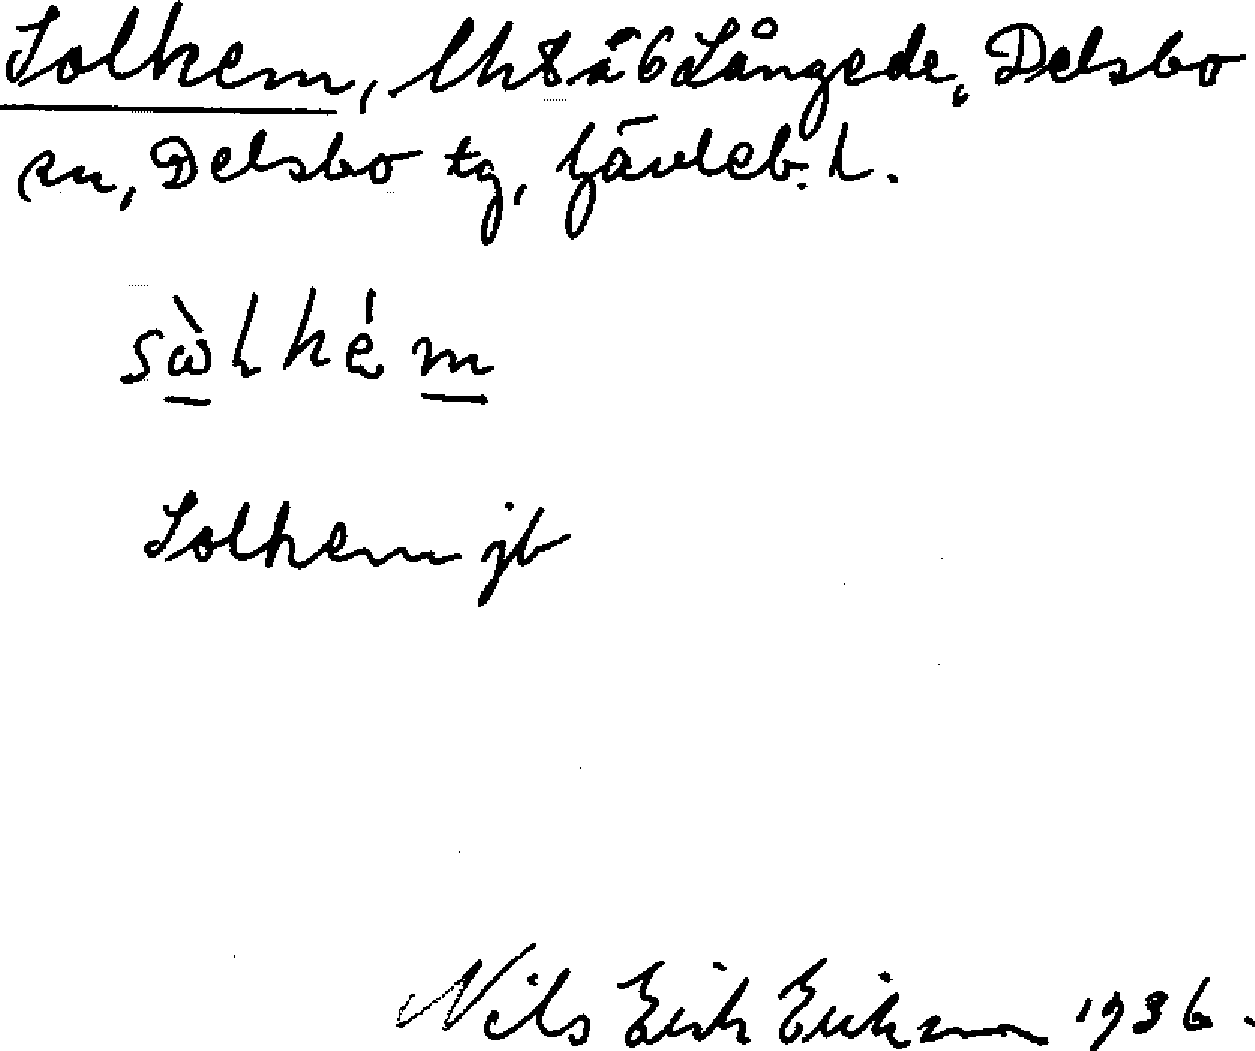 Solhem, lht å 6 Långede, Delsbo
sn, Delsbo tg, Gävleb. l.
sὼlhém
Solhem jb
Nils Erik Erikson 1936.